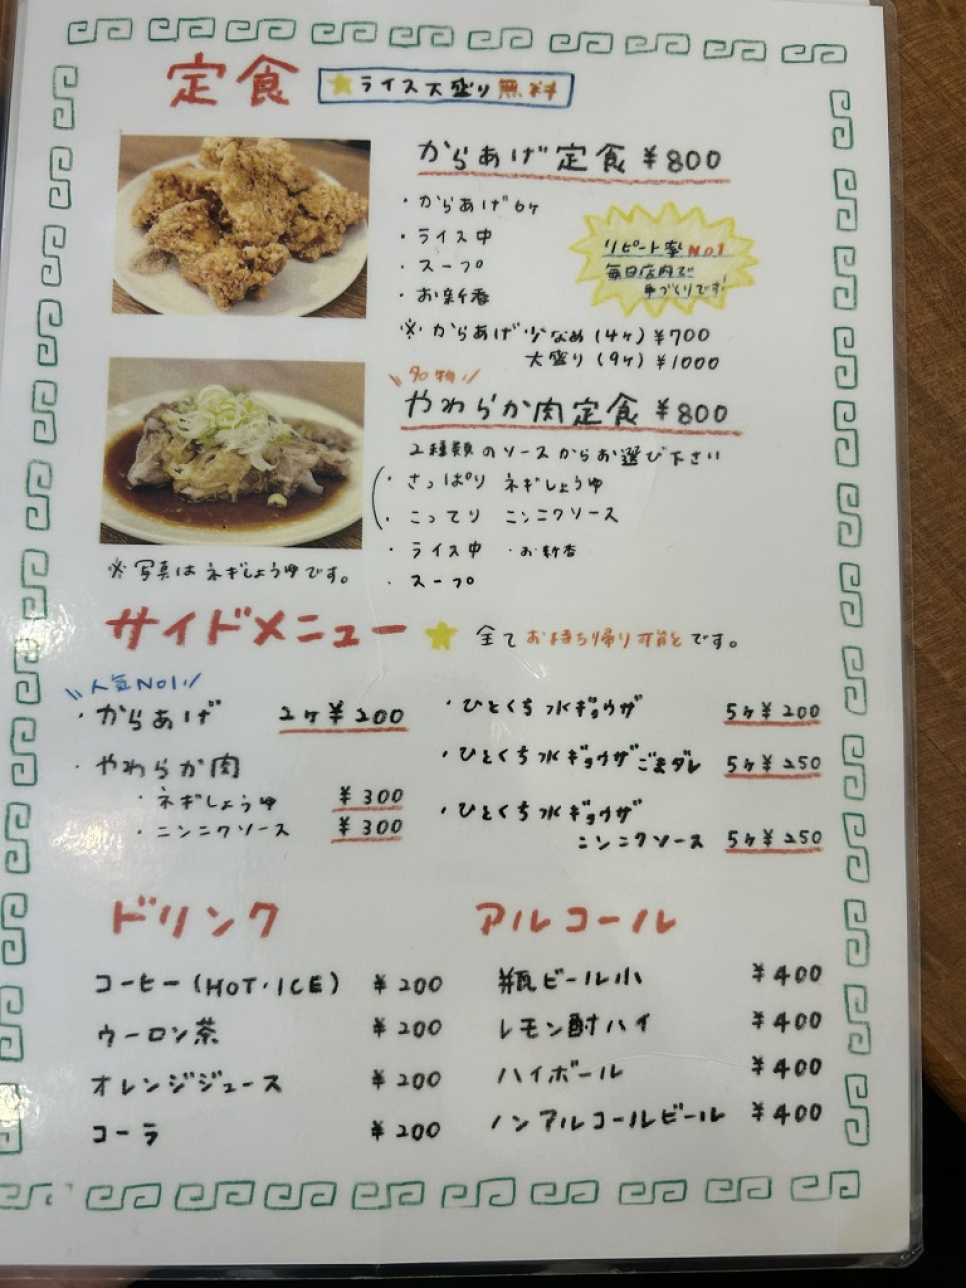 定食 ★ライス大盛り無料
からあげ定食 ¥800
・からあげ6ヶ
・ライス中
・スープ
・お新香
リピート率No1
毎日店内で
手づくりです!
※からあげ少なめ(4ヶ)¥700
大盛り(9ヶ)¥1000
\\名物//
やわらか肉定食 ¥800
2種類のソースからお選び下さい
・さっぱり ネギしょうゆ
・こってり ニンニクソース
・ライス中 ・お新香
・スープ
※写真はネギしょうゆです。
サイドメニュー ★ 全てお持ち帰り可能です。
\\人気NO1//
・からあげ 2ヶ¥200
・やわらか肉
・ネギしょうゆ ¥300
・ニンニクソース ¥300
・ひとくち水ギョウザ 5ヶ¥200
・ひとくち水ギョウザごまダレ 5ヶ¥250
・ひとくち水ギョウザ
ニンニクソース 5ヶ¥250
ドリンク
コーヒー(HOT・ICE) ¥200
ウーロン茶 ¥200
オレンジジュース ¥200
コーラ ¥200
アルコール
瓶ビール小 ¥400
レモン酎ハイ ¥400
ハイボール ¥400
ノンアルコールビール ¥400